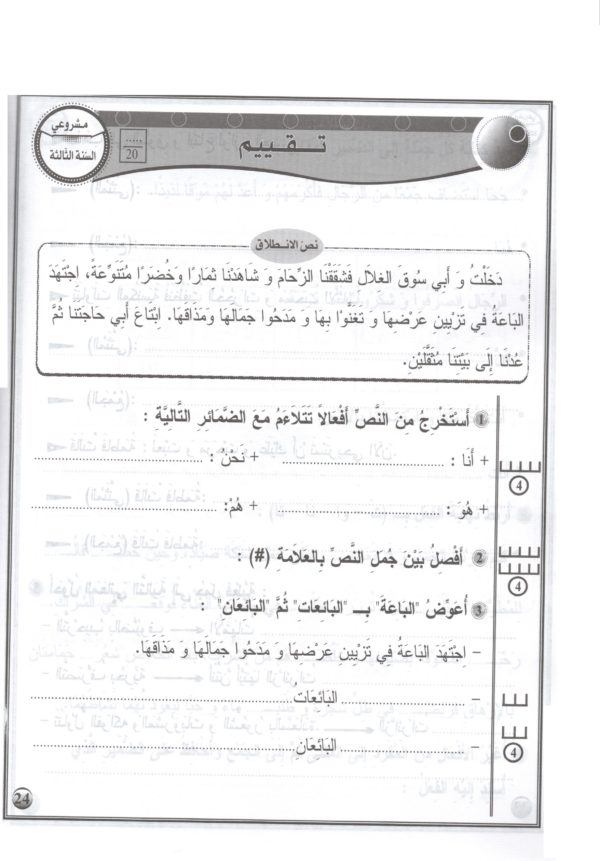 مشروعي
السّنة الثّالثة
.....
20
تـقـيـيـم
نص الانـطـلاق
دَخَلْتُ وَ أَبِي سُوقَ الغِلَالِ فَشَقَقْنَا الزِّحَامَ وَ شَاهَدْنَا ثِمَارًا وَ خُضَرًا مُتَنَوِّعَةً، اِجْتَهَدَ
البَاعَةُ فِي تَزْيِينِ عَرْضِهَا وَ تَغَنَّوْا بِهَا وَ مَدَحُوا جَمَالَهَا وَمَذَاقَهَا. اِبْتَاعَ أَبِي حَاجَتَنَا ثُمَّ
عُدْنَا إِلَى بَيْتِنَا مُثْقَلَيْنِ.
1 أَسْتَخْرِجُ مِنَ النَّصِّ أَفْعَالاً تَتَلاَءَمُ مَعَ الضَّمَائِرِ التَّالِيَّةِ :
+ أَنَا : ........................ + نَحْنُ : ........................
4
+ هُوَ : ........................ + هُمْ: ........................
2 أَفْصِلُ بَيْنَ جُمَلِ النَّصِّ بِالعَلاَمَةِ (#) :
4
3 أُعَوِّضُ "البَاعَةَ" بِــ "البَائِعَاتِ" ثُمَّ "البَائِعَانِ" :
- اِجْتَهَدَ البَاعَةُ فِي تَزْيِينِ عَرْضِهَا وَ مَدَحُوا جَمَالَهَا وَ مَذَاقَهَا.
- ............ البَائِعَاتُ ........................
- ............ البَائِعَانِ ........................
4
24